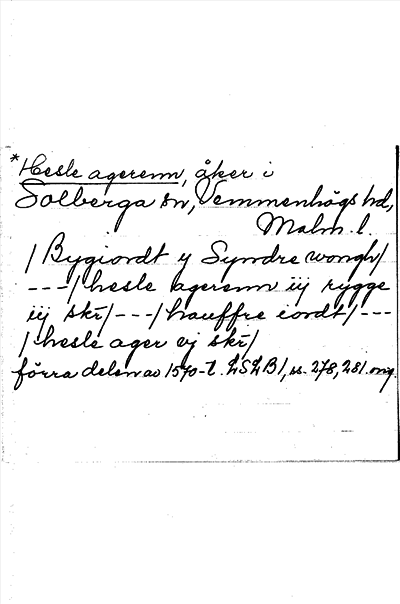 *Hesle agerenn, åker i
Solberga sn, Vemmenhögs hd,
Malm. l.
/ Bygiordt y Syndre wongh/
---/ hesle agerenn iij rygge
iij skr/ ---/ hauffre iordt/ ---
/ hesle ager vj skr/
förra delen av 1570-t. LSLB1, ss. 278, 281. orig.